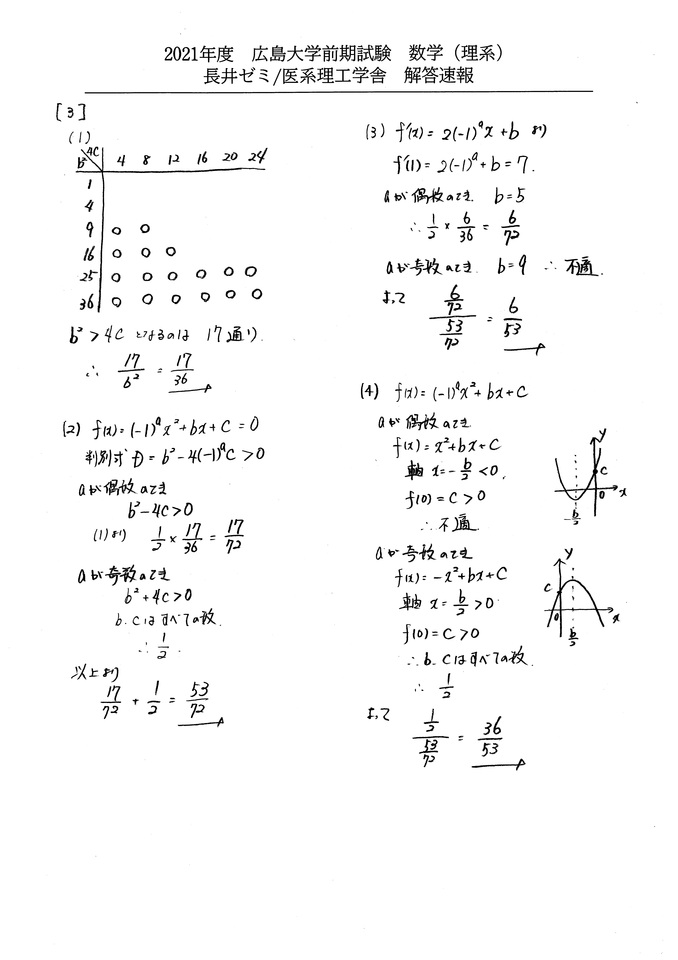 2021年度 広島大学前期試験 数学（理系）
長井ゼミ/医系理工学舎 解答速報
[3]
(1)
b² 4C 4 8 12 16 20 24
1
4
9 ○ ○
16 ○ ○ ○
25 ○ ○ ○ ○ ○ ○
36 ○ ○ ○ ○ ○ ○
b² > 4C となるのは 17通り.
∴ 17/6² = 17/36
(2) f(x) = (-1)^a x² + bx + C = 0
判別式 D = b² - 4(-1)^a C > 0
aが偶数のとき
b² - 4C > 0
(1)より 1/2 × 17/36 = 17/72
aが奇数のとき
b² + 4C > 0
b. Cはすべての数.
∴ 1/2.
以上より
17/72 + 1/2 = 53/72
(3) f'(x) = 2(-1)^a x + b より
f'(1) = 2(-1)^a + b = 7.
aが偶数のとき b = 5
∴ 1/2 × 6/36 = 6/72
aが奇数のとき. b = 9 ∴ 不適.
よって (6/72)/(53/72) = 6/53
(4) f(x) = (-1)^a x² + bx + C
aが偶数のとき
f(x) = x² + bx + C
軸 x = -b/2 < 0,
f(0) = C > 0
∴ 不適.
y
C
0 x
-b/2
aが奇数のとき
f(x) = -x² + bx + C
軸 x = b/2 > 0
f(0) = C > 0
∴ b. Cはすべての数.
∴ 1/2
y
C
0 x
b/2
よって (1/2)/(53/72) = 36/53